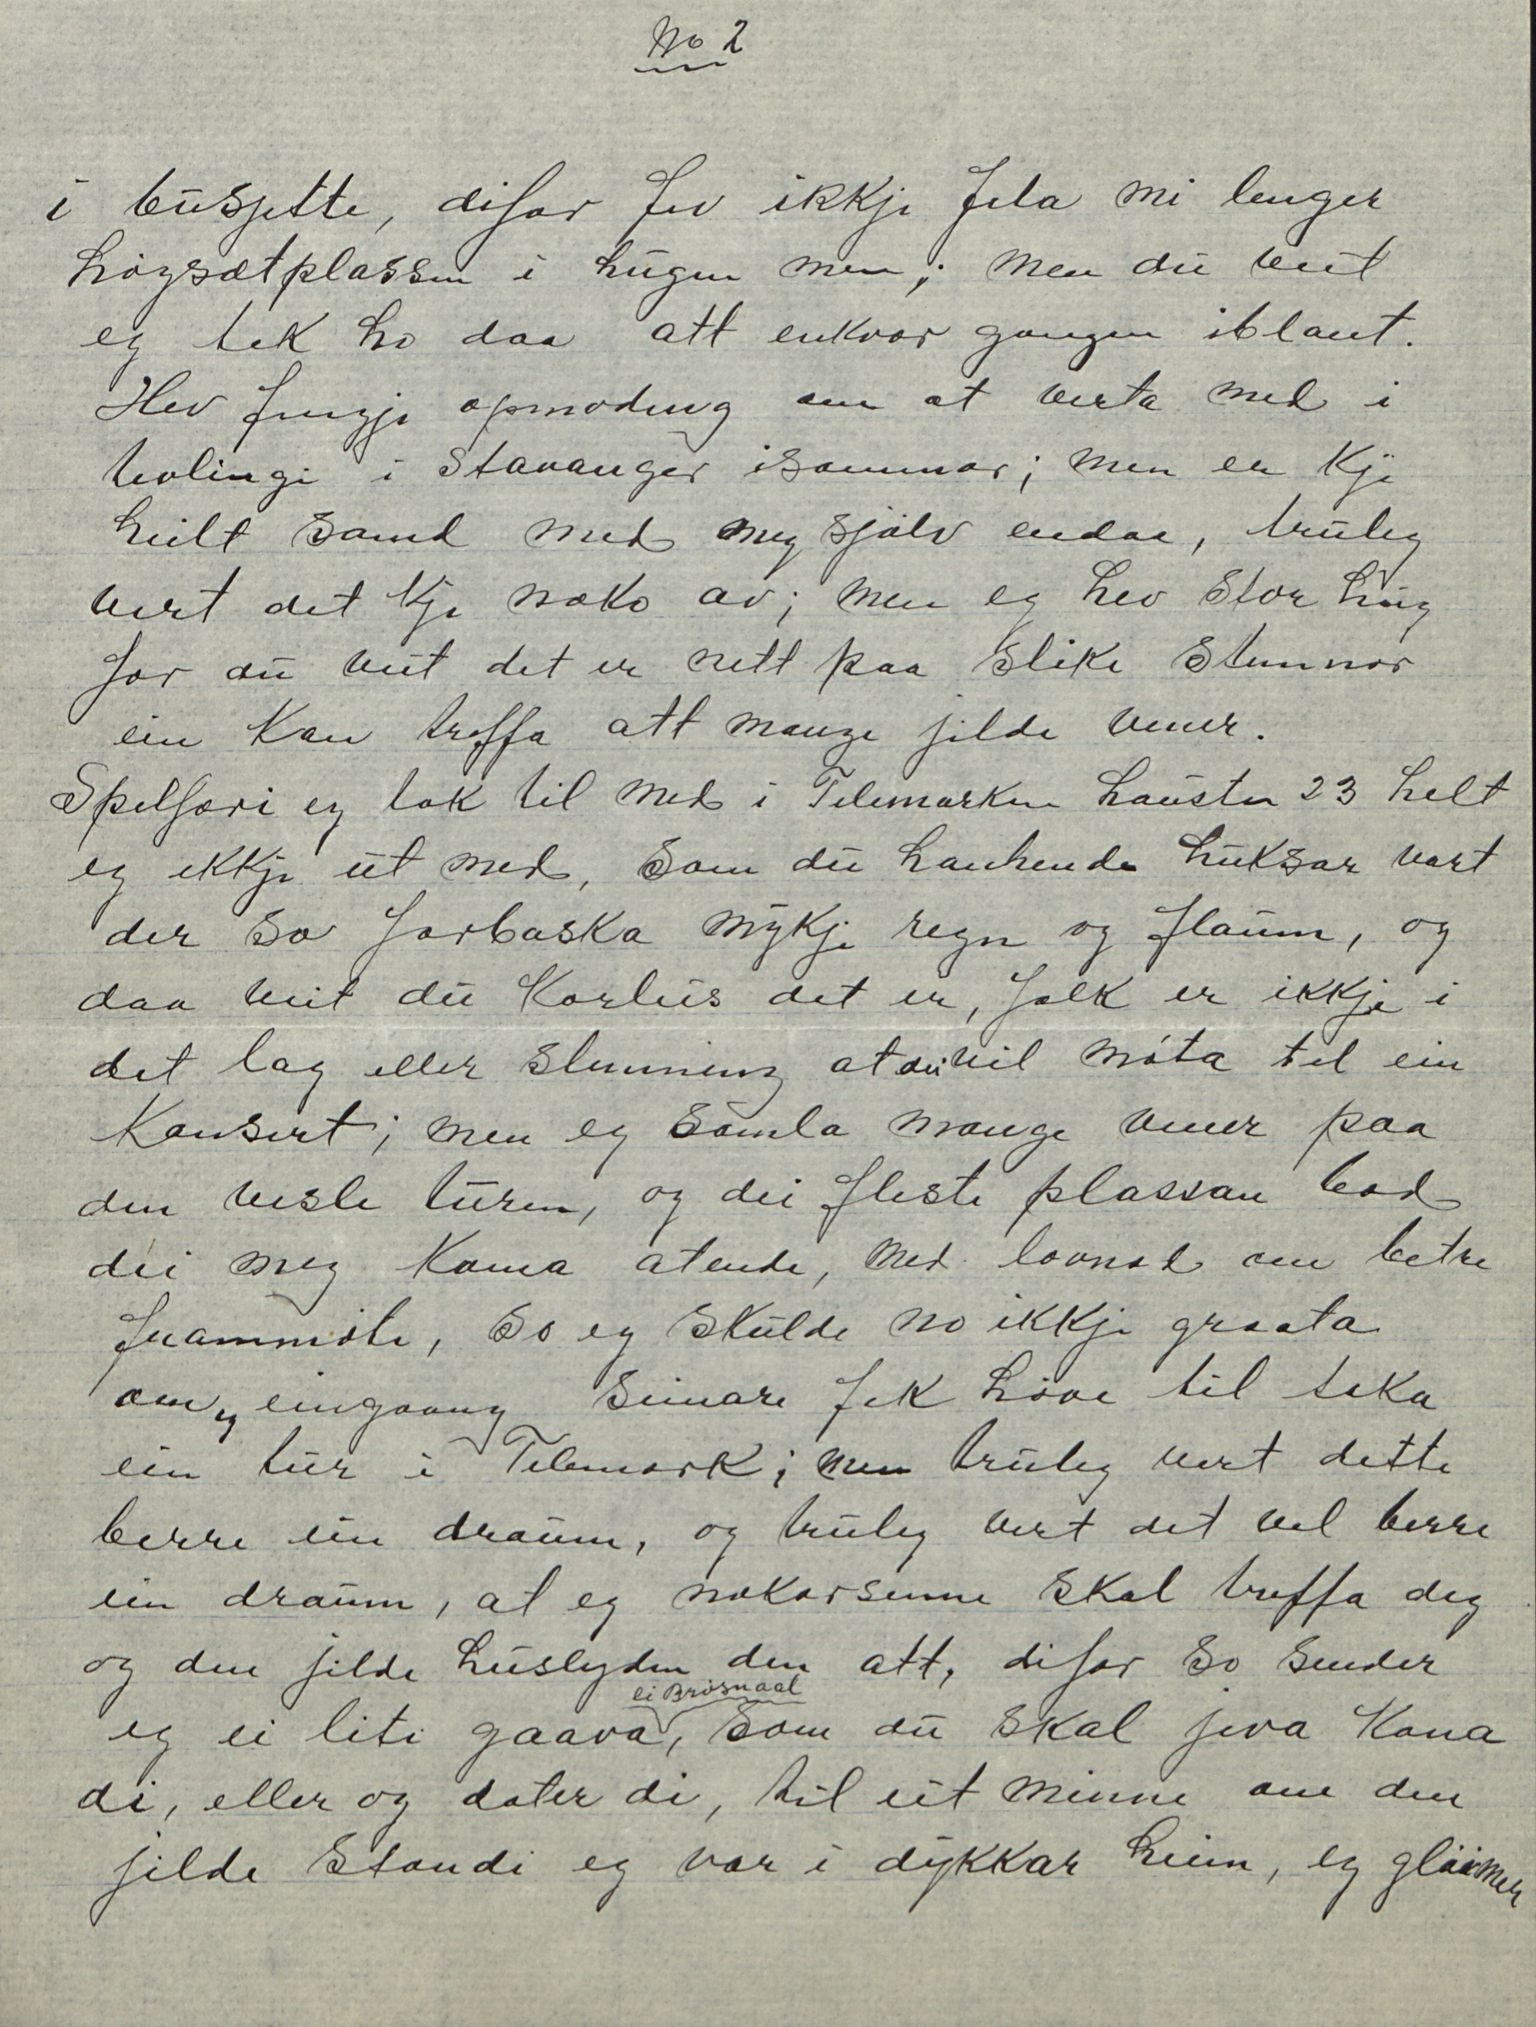 No 2
i busjette, difor fer ikkje fela mi lenger
høgsætplassen i hugen men; men du veit
eg tek ho daa att enkvar gongen iblant.
Hev fengje opmoding om at verta med i
tevlingi i Stavanger isommar; men er kje
heilt samd med meg sjølv endaa, truleg
vert det kje noko av; men eg hev stor hug
for du veit det er nett paa slike stunnor
ein kan treffa att mange jilde vener.
Spelferi eg tok til med i Telemarken hausten 23 helt
eg ikkje ut med, som du hauhende huksar vart
der so forbaska mykje regn og flaum, og
daa veit du korleis det er, folk er ikkje i
det lag eller stunning at dei vil møta til ein
Konsert; men eg samla mange vener paa
den vesle turen, og dei fleste plassan bad
dei meg koma atende, med lovnad om betre
frammøte, so eg skulde no ikkje graata
om eg eingaang seinare fek høve til taka
ein tur i Telemark; men truleg vert dette
berre ein draum, og truleg vert det vel berre
ein draum, at eg nokorsinne skal treffa deg
og den jilde huslyden den att, difor so sender
eg ei liti gaava, ei Brøsnaal som du skal jeva Kona
di, eller og doter di, til eit minne om den
jilde stondi eg var i dykkar heim, eg gløimer